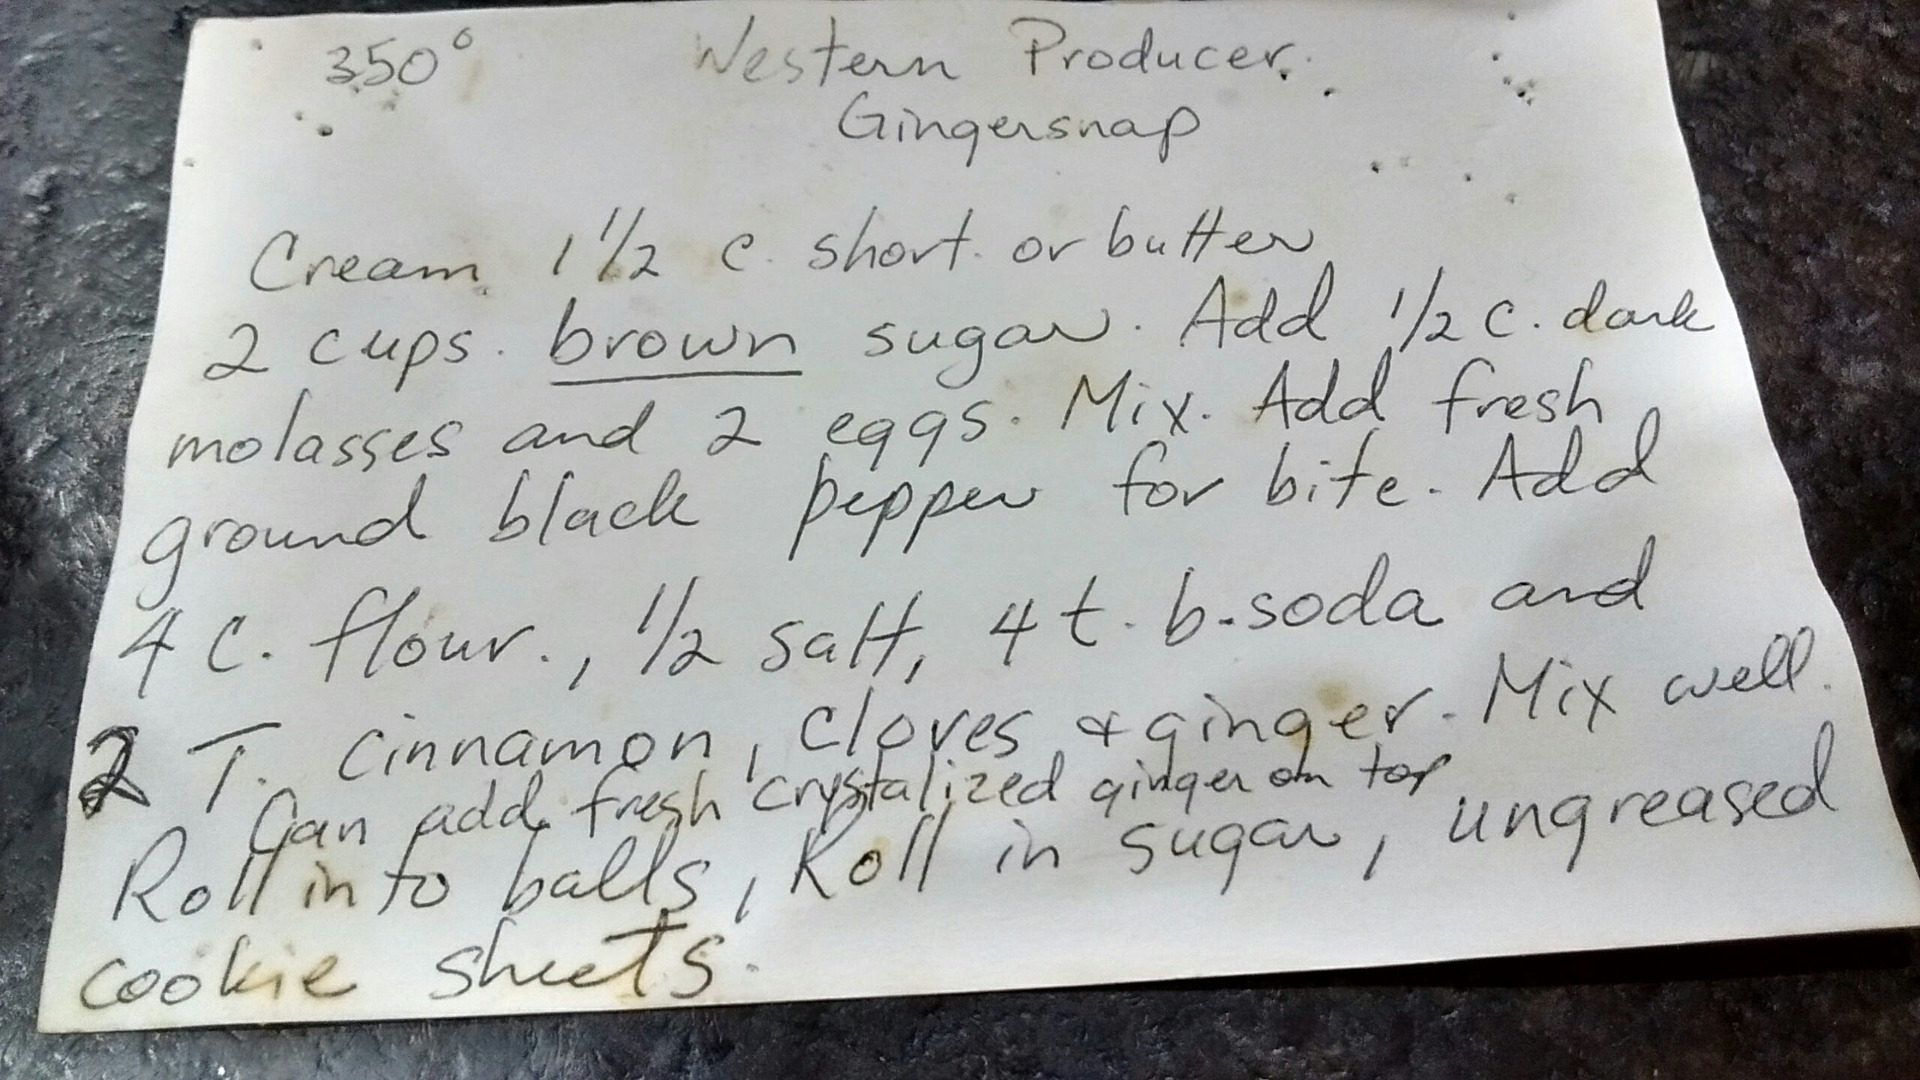 350° Western Producer.
Gingersnap
Cream 1 1/2 c. short. or butter
2 cups. brown sugar. Add 1/2 c. dark
molasses and 2 eggs. Mix. Add fresh
ground black pepper for bite. Add
4 C. flour., 1/2 salt, 4 t. b. soda and
2 T. cinnamon, cloves & ginger. Mix well.
Can add fresh crystalized ginger on top
Roll into balls, Roll in sugar, ungreased
cookie sheets.